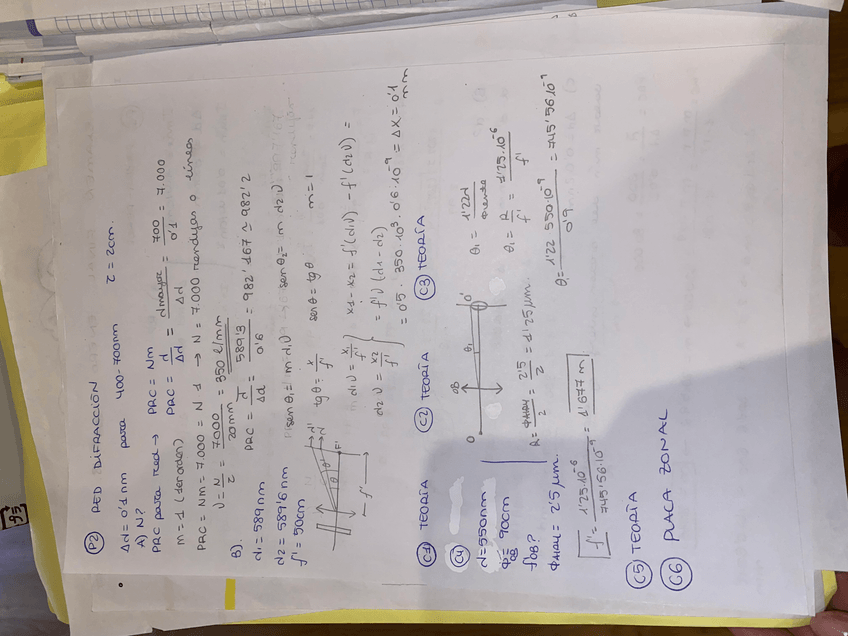 P2 RED DIFRACCIÓN
Δd = 0'1 nm para 400-700nm z = 2cm.
A) N?
PRC para red → PRC = Nm
m = 1 (1er orden) PRC = d/Δd = dmayor/Δd = 700/0'1 = 7.000
PRC = Nm = 7.000 = N 1 → N = 7.000 rendijas o líneas
ν = N/z = 7000/20mm = 350 l/mm
B). PRC = d/Δd = 589'3/0'6 = 982'167 ≈ 982'2
d1 = 589nm
d2 = 589'6nm senθ1 = m·d1ν senθ2 = m d2ν
f' = 50cm
tgθ = x/f' senθ = tgθ m = 1
d1ν = x1/f' } x1 - x2 = f'(d1ν) - f'(d2ν) =
d2ν = x2/f' } = f'ν(d1 - d2)
= 0'5 · 350·10³ · 0'6·10⁻⁹ = ΔX = 0'1 mm
C1 TEORÍA C2 TEORÍA C3 TEORÍA
C4
d = 550nm
ΦOB = 90cm
fOB?
ΦAIRY = 2'5μm.
O OB θ1 O'
R = ΦAIRY/2 = 2'5/2 = 1'25μm.
θ1 = 1'22d/Φlente
θ1 = R/f' = 1'25·10⁻⁶/f'
θ1 = 1'22 550·10⁻⁹/0'9 = 745'56·10⁻⁹
f' = 1'25·10⁻⁶/745'56·10⁻⁹ = 1'677 m
C5 TEORÍA
C6 PLACA ZONAL